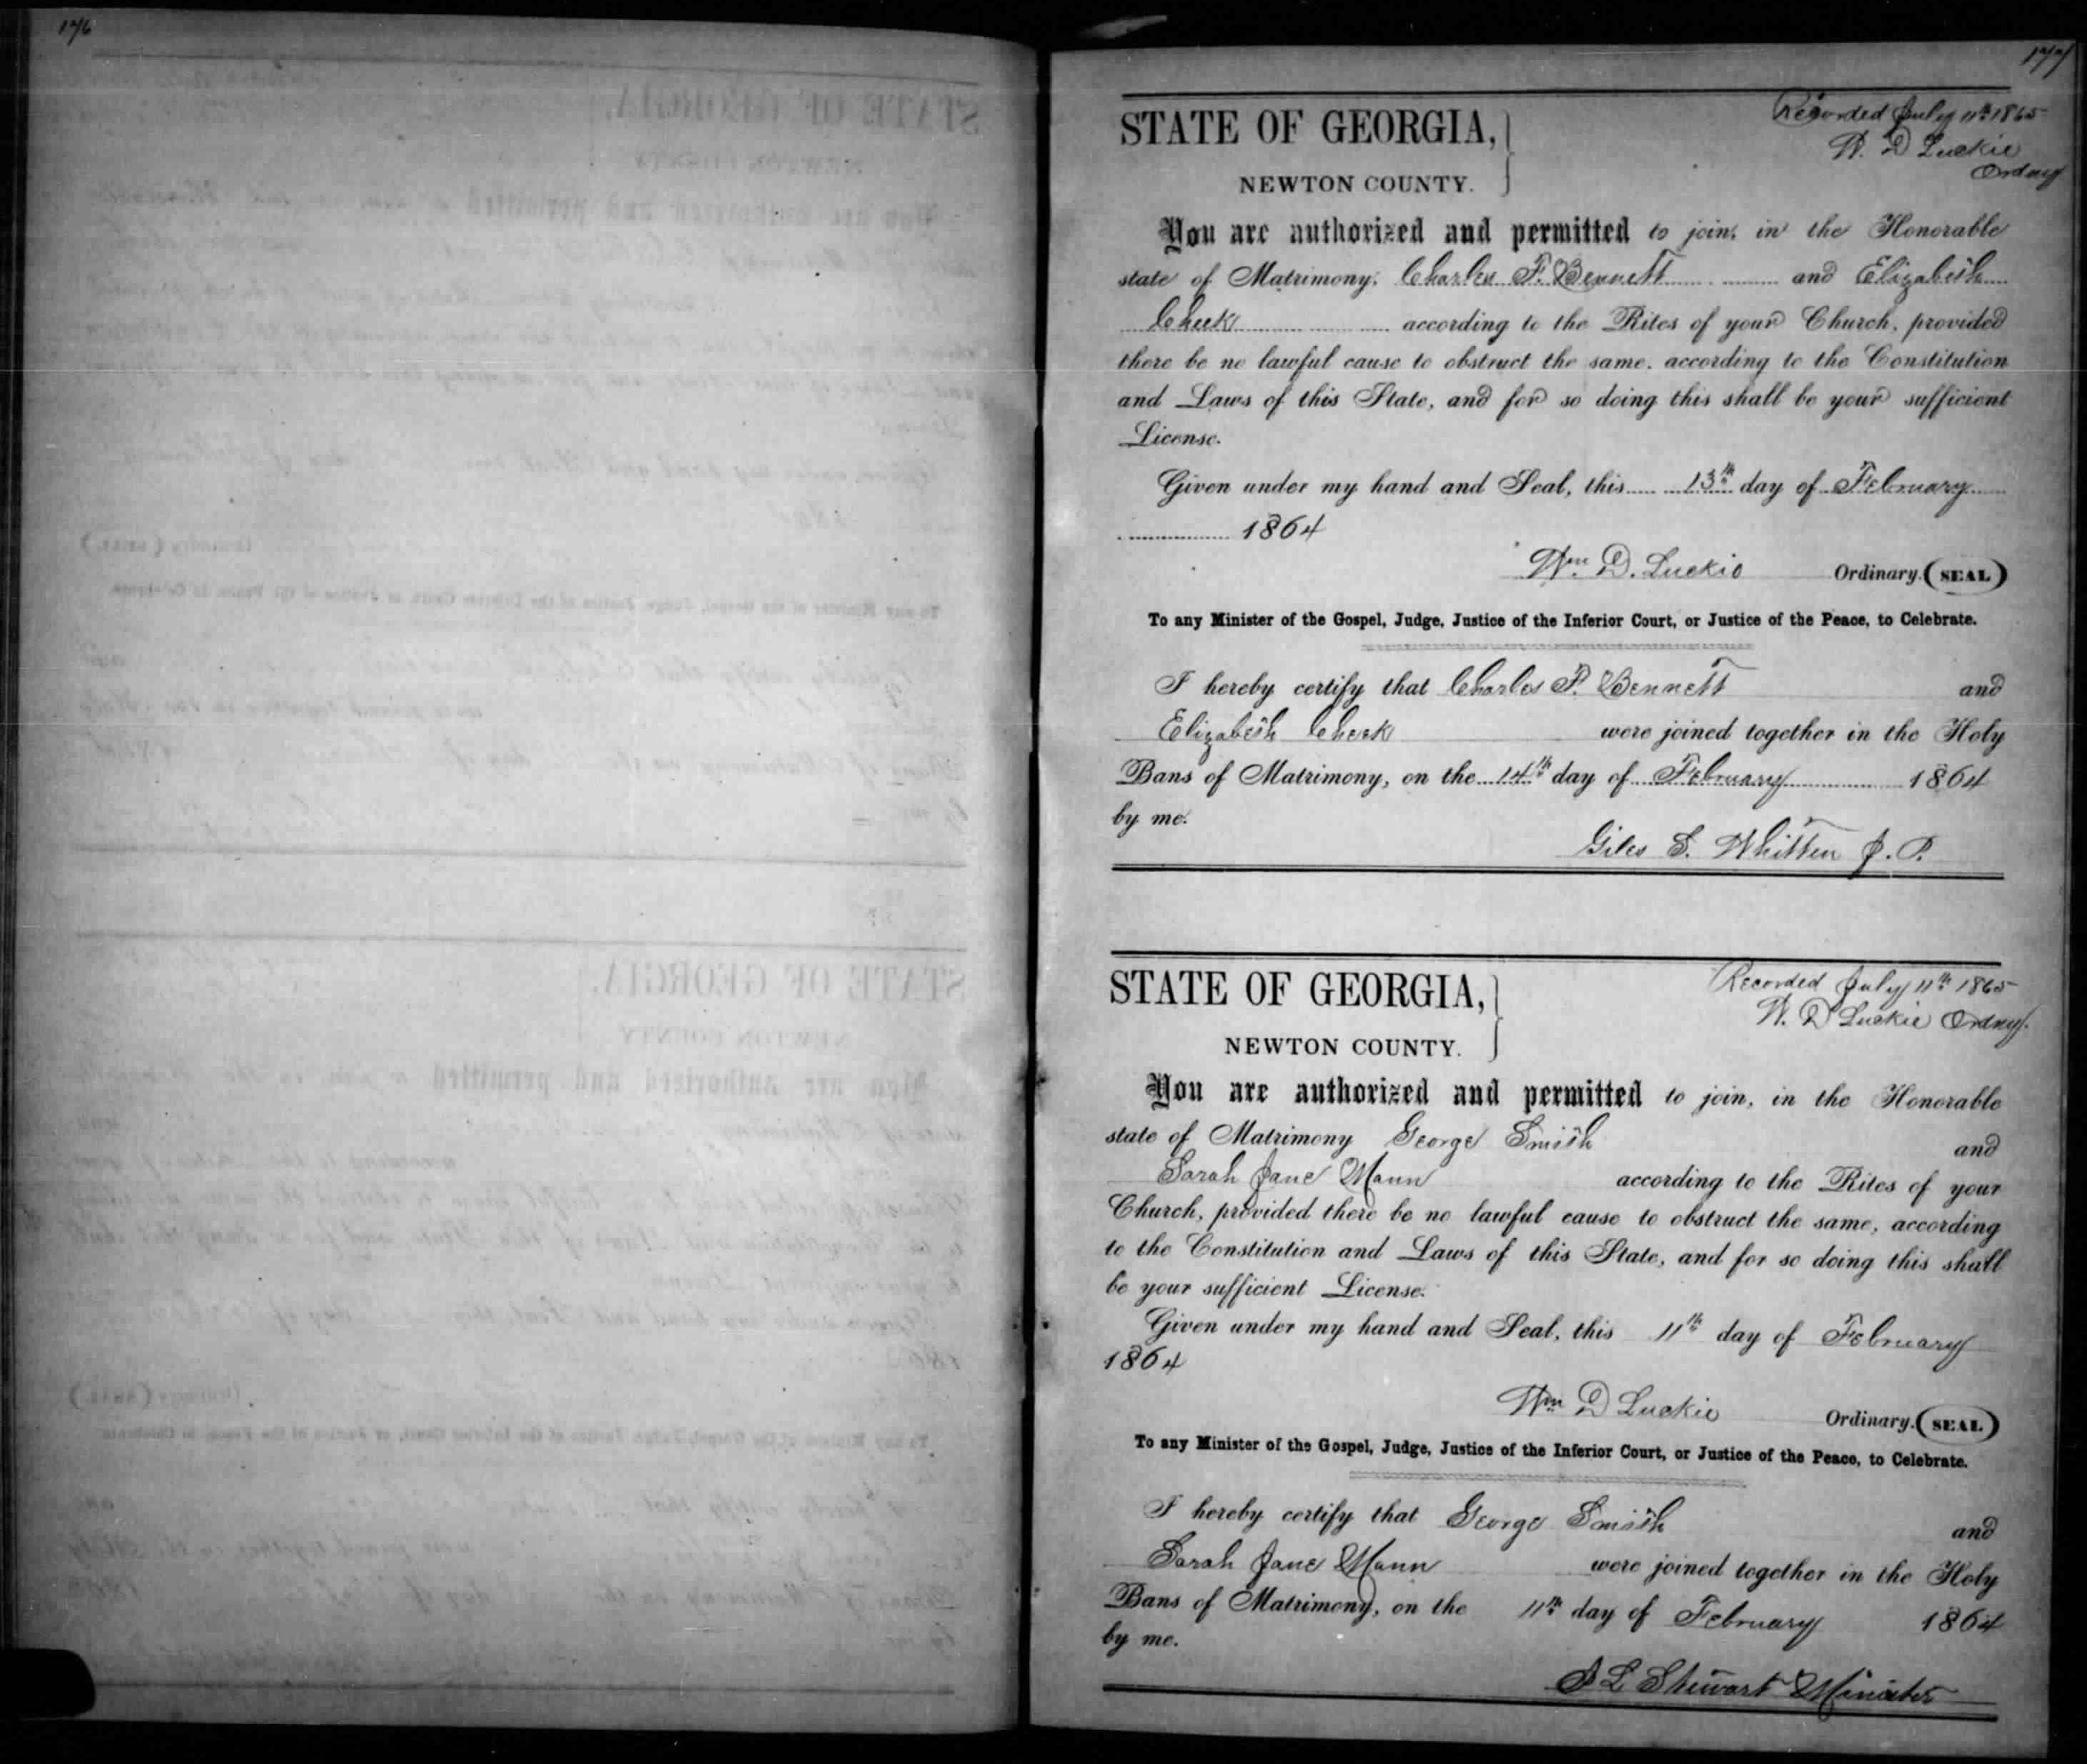 176
177
Recorded July 11th 1865
W. D Luckie
Ordny
STATE OF GEORGIA,
NEWTON COUNTY.
You are authorized and permitted to join, in the Honorable
state of Matrimony, Charles F. Bennett and Elizabeth
Cheek according to the Rites of your Church, provided
there be no lawful cause to obstruct the same, according to the Constitution
and Laws of this State, and for so doing this shall be your sufficient
License.
Given under my hand and Seal, this 13th day of February
1864
Wm. D. Luckie Ordinary. (SEAL)
To any Minister of the Gospel, Judge, Justice of the Inferior Court, or Justice of the Peace, to Celebrate.
I hereby certify that Charles F. Bennett and
Elizabeth Cheek were joined together in the Holy
Bans of Matrimony, on the 14th day of February 1864
by me.
Giles S. Whitten J. P.
STATE OF GEORGIA,
NEWTON COUNTY.
Recorded July 11th 1865
W. D Luckie Ordny.
You are authorized and permitted to join, in the Honorable
state of Matrimony George Smith and
Sarah Jane Mann according to the Rites of your
Church, provided there be no lawful cause to obstruct the same, according
to the Constitution and Laws of this State, and for so doing this shall
be your sufficient License.
Given under my hand and Seal, this 11th day of February
1864
Wm D Luckie Ordinary. (SEAL)
To any Minister of the Gospel, Judge, Justice of the Inferior Court, or Justice of the Peace, to Celebrate.
I hereby certify that George Smith and
Sarah Jane Mann were joined together in the Holy
Bans of Matrimony, on the 11th day of February 1864
by me.
L Stewart Minister